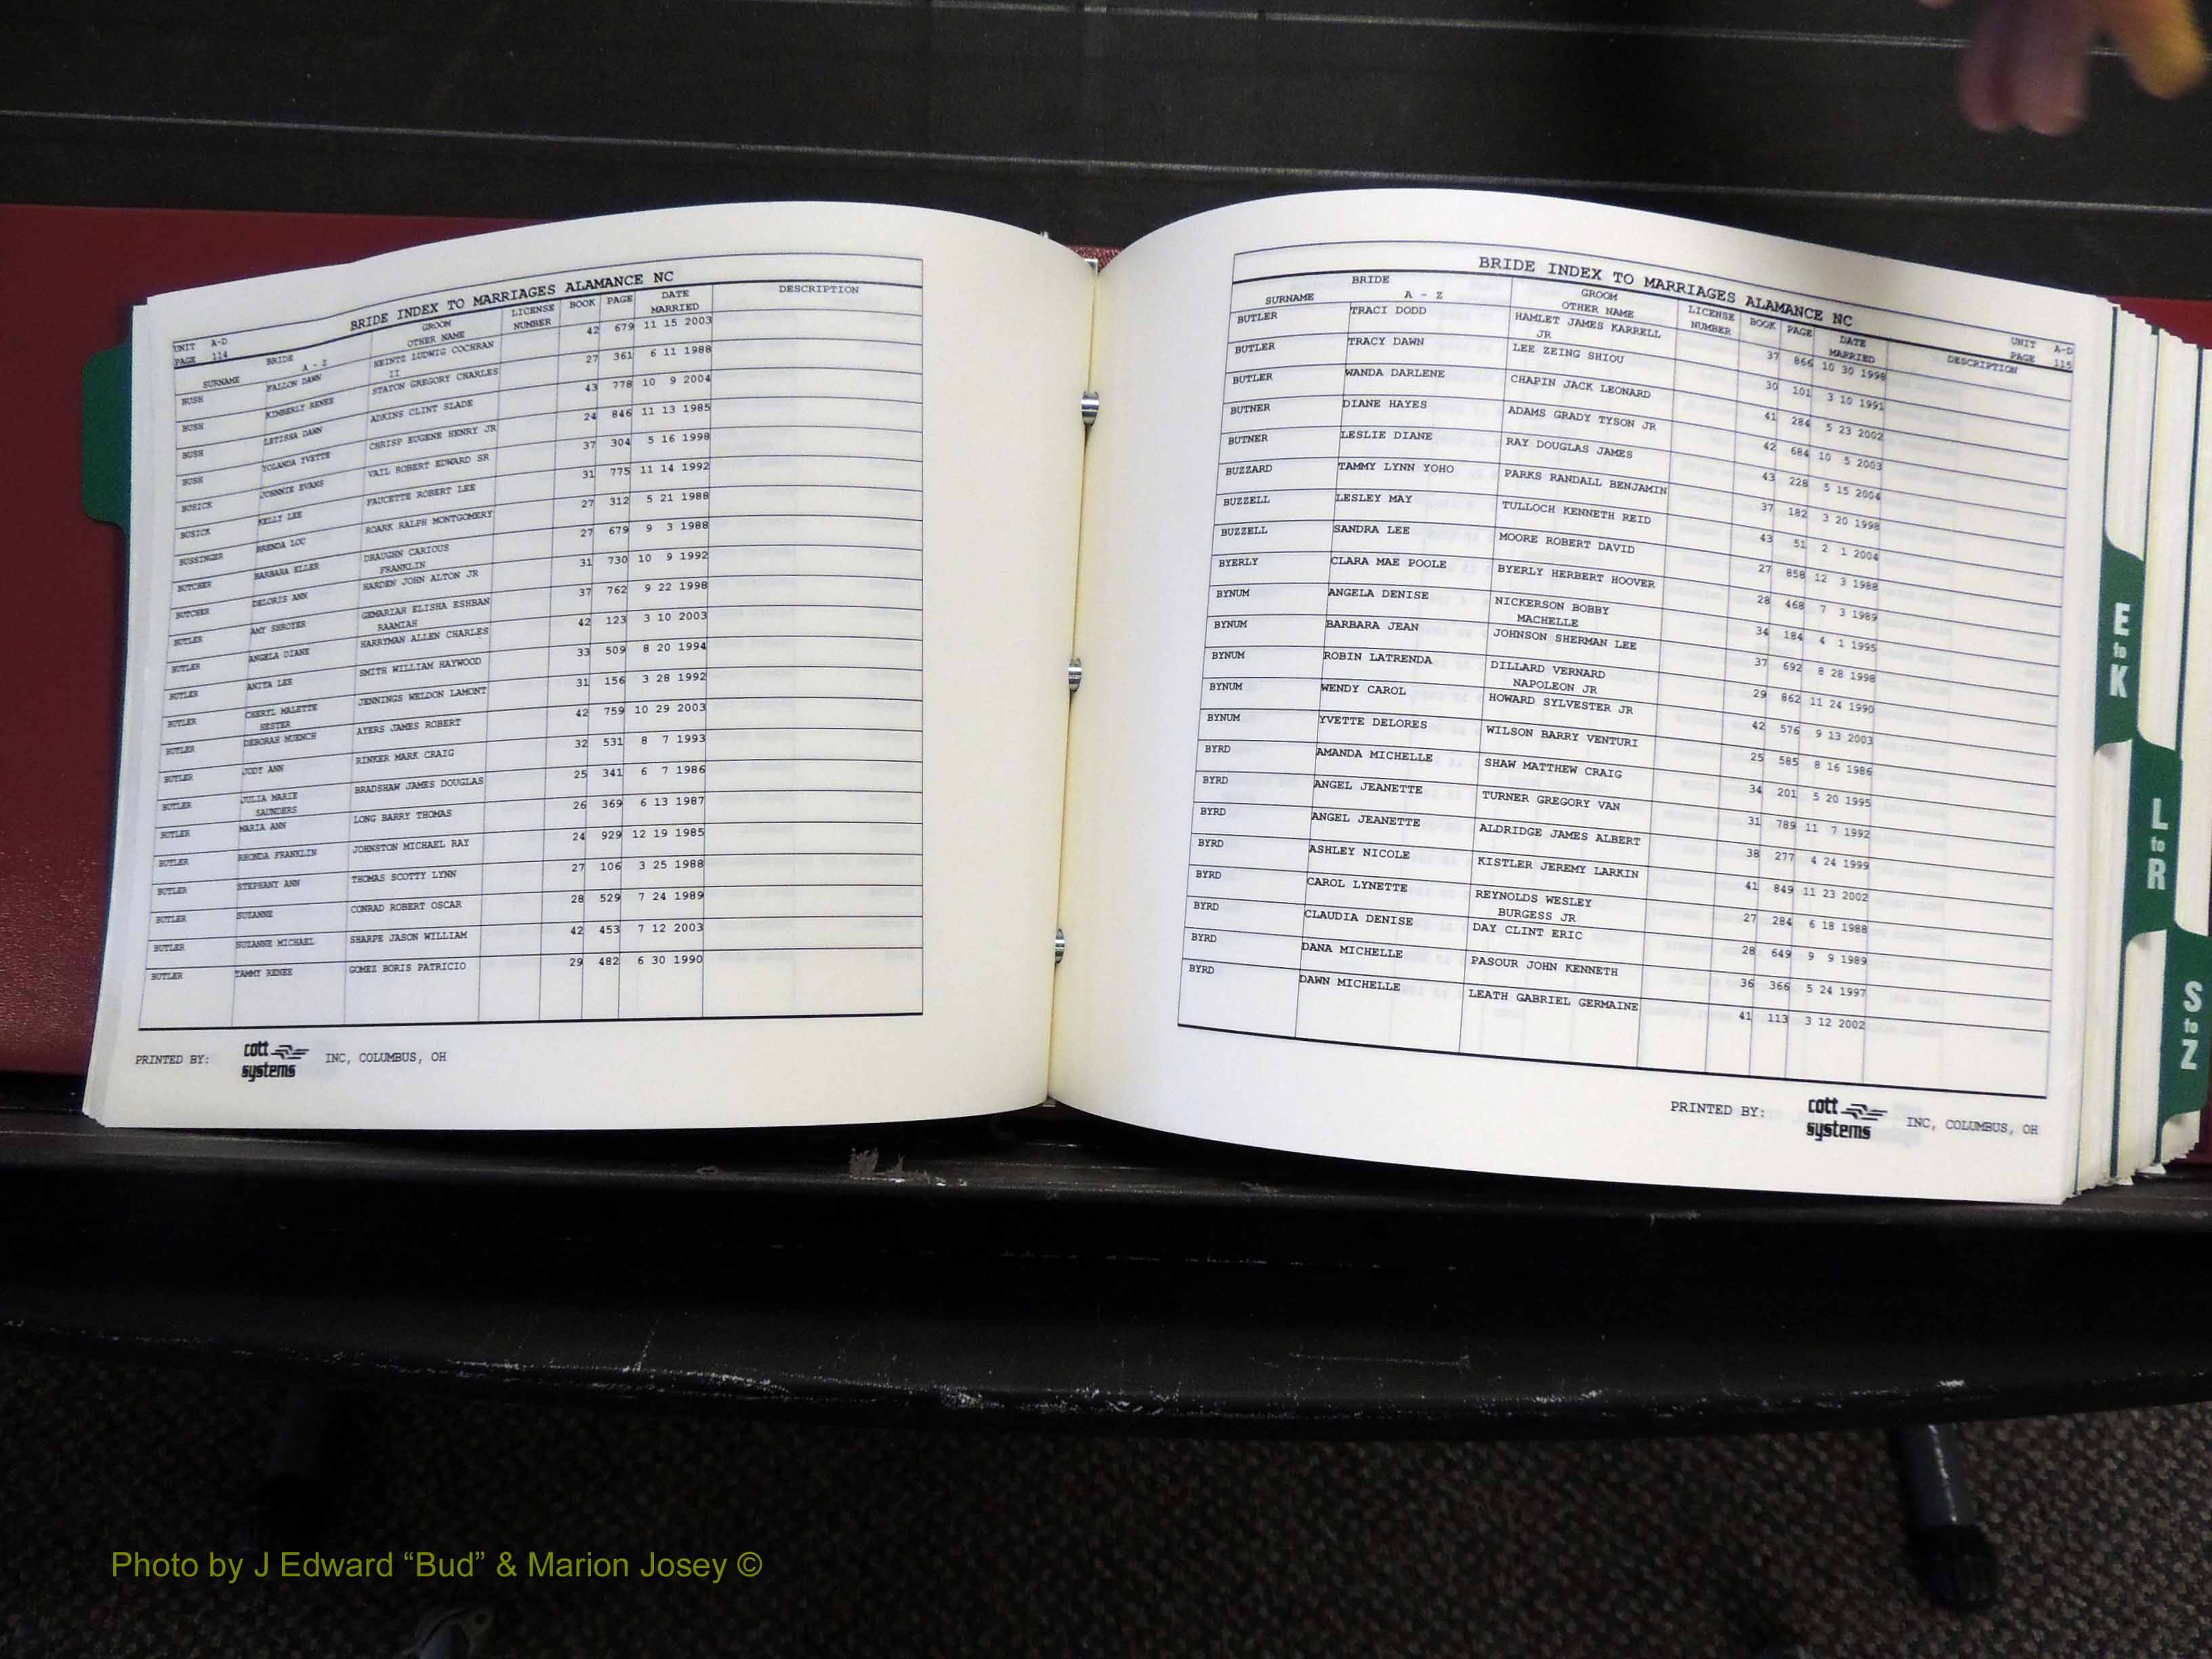 BRIDE INDEX TO MARRIAGES ALAMANCE NC
UNIT A-D
PAGE 114
SURNAME BRIDE A - Z GROOM OTHER NAME LICENSE NUMBER BOOK PAGE DATE MARRIED DESCRIPTION
BUSH FALLON DAWN HEINTZ LUDWIG COCHRAN II 42 679 11 15 2003
BUSH KIMBERLY RENEE STATON GREGORY CHARLES 27 361 6 11 1988
BUSH LETISSA DAWN ADKINS CLINT SLADE 43 778 10 9 2004
BUSH YOLANDA YVETTE CHRISP EUGENE HENRY JR 24 846 11 13 1985
BUSICK JOHNNIE EVANS VAIL ROBERT EDWARD SR 37 304 5 16 1998
BUSICK KELLY LEE FAUCETTE ROBERT LEE 31 775 11 14 1992
BUSSINGER BRENDA LOU ROARK RALPH MONTGOMERY 27 312 5 21 1988
BUTCHER BARBARA ELLER DRAUGHN CARIOUS FRANKLIN 27 679 9 3 1988
BUTCHER DELORIS ANN HARDEN JOHN ALTON JR 31 730 10 9 1992
BUTLER AMY SHROYER GEMARIAH ELISHA ESHBAN RAAMIAH 37 762 9 22 1998
BUTLER ANGELA DIANE HARRYMAN ALLEN CHARLES 42 123 3 10 2003
BUTLER ANITA LEE SMITH WILLIAM HAYWOOD 33 509 8 20 1994
BUTLER CHERYL MALETTE HESTER JENNINGS WELDON LAMONT 31 156 3 28 1992
BUTLER DEBORAH MUENCH AYERS JAMES ROBERT 42 759 10 29 2003
BUTLER JODY ANN RINKER MARK CRAIG 32 531 8 7 1993
BUTLER JULIA MARIE SAUNDERS BRADSHAW JAMES DOUGLAS 25 341 6 7 1986
BUTLER MARIA ANN LONG BARRY THOMAS 26 369 6 13 1987
BUTLER RHONDA FRANKLIN JOHNSTON MICHAEL RAY 24 929 12 19 1985
BUTLER STEPHANY ANN THOMAS SCOTTY LYNN 27 106 3 25 1988
BUTLER SUZANNE CONRAD ROBERT OSCAR 28 529 7 24 1989
BUTLER SUZANNE MICHAEL SHARPE JASON WILLIAM 42 453 7 12 2003
BUTLER TAMMY RENEE GOMEZ BORIS PATRICIO 29 482 6 30 1990
PRINTED BY: cott systems INC, COLUMBUS, OH
BRIDE INDEX TO MARRIAGES ALAMANCE NC
UNIT A-D
PAGE 115
SURNAME BRIDE A - Z GROOM OTHER NAME LICENSE NUMBER BOOK PAGE DATE MARRIED DESCRIPTION
BUTLER TRACI DODD HAMLET JAMES KARRELL JR 37 866 10 30 1998
BUTLER TRACY DAWN LEE ZEING SHIOU 30 101 3 10 1991
BUTLER WANDA DARLENE CHAPIN JACK LEONARD 41 284 5 23 2002
BUTNER DIANE HAYES ADAMS GRADY TYSON JR 42 684 10 5 2003
BUTNER LESLIE DIANE RAY DOUGLAS JAMES 43 228 5 15 2004
BUZZARD TAMMY LYNN YOHO PARKS RANDALL BENJAMIN 37 182 3 20 1998
BUZZELL LESLEY MAY TULLOCH KENNETH REID 43 51 2 1 2004
BUZZELL SANDRA LEE MOORE ROBERT DAVID 27 858 12 3 1988
BYERLY CLARA MAE POOLE BYERLY HERBERT HOOVER 28 468 7 3 1989
BYNUM ANGELA DENISE NICKERSON BOBBY MACHELLE 34 184 4 1 1995
BYNUM BARBARA JEAN JOHNSON SHERMAN LEE 37 692 8 28 1998
BYNUM ROBIN LATRENDA DILLARD VERNARD NAPOLEON JR 29 862 11 24 1990
BYNUM WENDY CAROL HOWARD SYLVESTER JR 42 576 9 13 2003
BYNUM YVETTE DELORES WILSON BARRY VENTURI 25 585 8 16 1986
BYRD AMANDA MICHELLE SHAW MATTHEW CRAIG 34 201 5 20 1995
BYRD ANGEL JEANETTE TURNER GREGORY VAN 31 789 11 7 1992
BYRD ANGEL JEANETTE ALDRIDGE JAMES ALBERT 38 277 4 24 1999
BYRD ASHLEY NICOLE KISTLER JEREMY LARKIN 41 849 11 23 2002
BYRD CAROL LYNETTE REYNOLDS WESLEY BURGESS JR 27 284 6 18 1988
BYRD CLAUDIA DENISE DAY CLINT ERIC 28 649 9 9 1989
BYRD DANA MICHELLE PASOUR JOHN KENNETH 36 366 5 24 1997
BYRD DAWN MICHELLE LEATH GABRIEL GERMAINE 41 113 3 12 2002
PRINTED BY: cott systems INC, COLUMBUS, OH
E to K
L to R
S to Z
Photo by J Edward “Bud” & Marion Josey ©